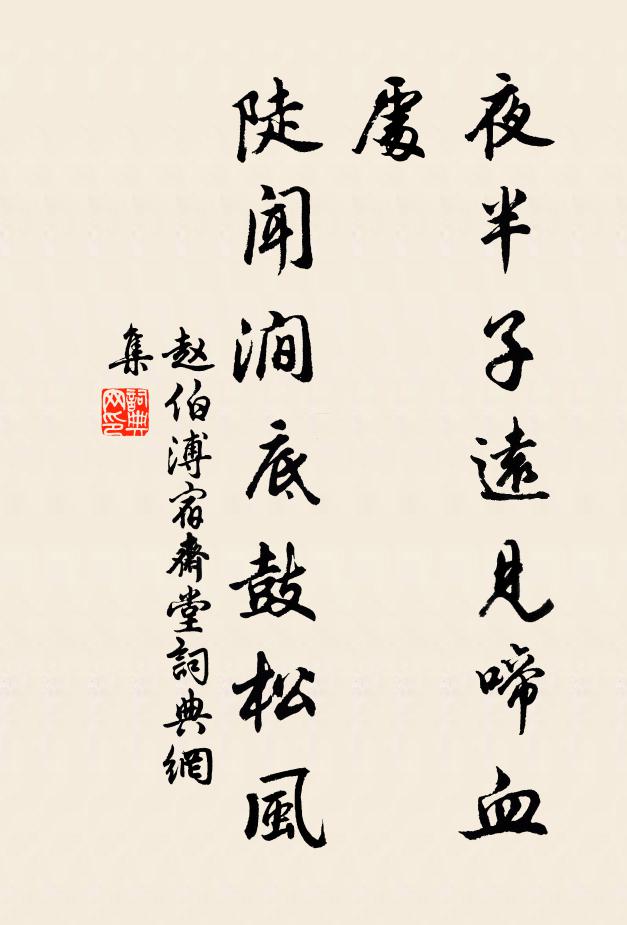 夜半子遠見啼血
處
陡闻澗底鼓松風
赵伯溥宿齋堂詞典網
集
詞典网印